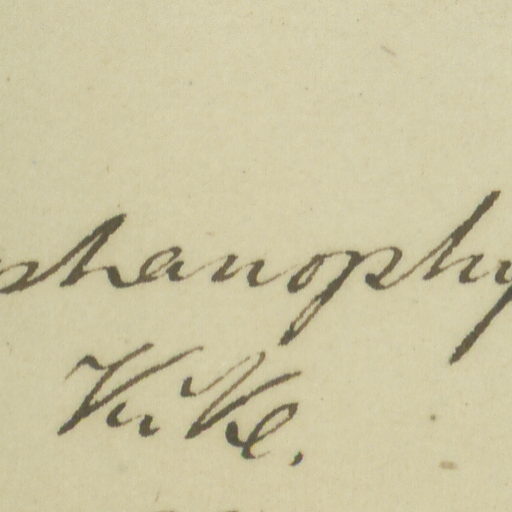 phanophy
KiKe.